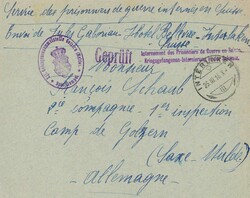 Service des prisonniers de guerre internés en Suisse
Envoi de Hôtel Bellevue Interlaken
Suisse
Geprüft
Internement des Prisonniers de Guerre en Suisse.
Kriegsgefangenen-Internierung in der Schweiz.
INTERLAKEN
Monsieur
François Schaub
compagnie inspection
Camp de Golzern
(Saxe Mulde)
Allemagne